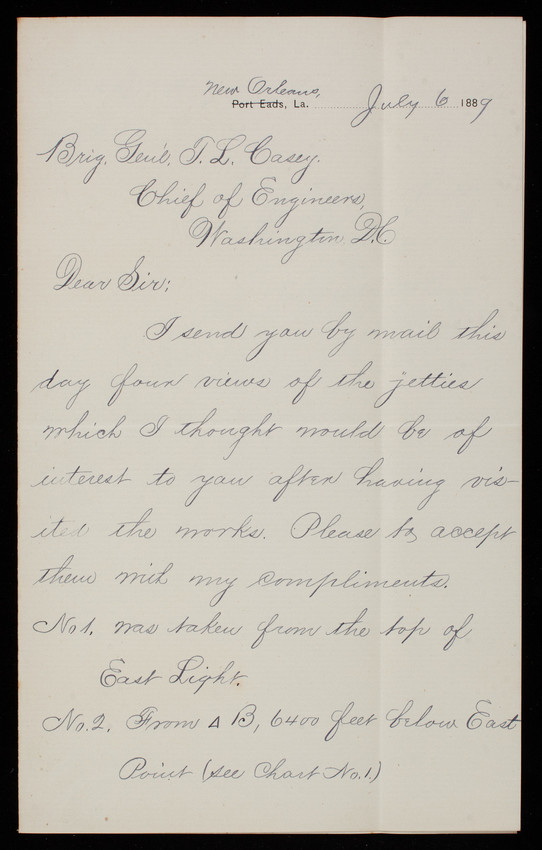 New Orleans,
Port Eads, La. July 6 1889
Brig. Gen'l. T. L. Casey.
Chief of Engineers,
Washington D.C.
Dear Sir:
I send you by mail this
day four views of the jetties
which I thought would be of
interest to you after having vis-
ited the works. Please to accept
them with my compliments.
No 1. was taken from the top of
East Light.
No. 2. From Δ B, 6400 feet below East
Point (see Chart No. 1.)